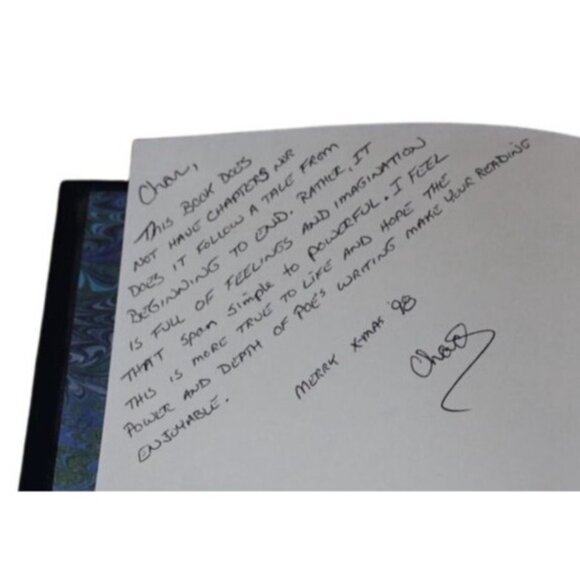 Char,
THIS BOOK DOES
NOT HAVE CHAPTERS NOR
DOES IT FOLLOW A TALE FROM
BEGINNING TO END. RATHER, IT
IS FULL OF FEELINGS AND IMAGINATION
THAT SPAN SIMPLE TO POWERFUL. I FEEL
THIS IS MORE TRUE TO LIFE AND HOPE THE
POWER AND DEATH OF POE'S WRITING MAKE YOUR READING
ENJOYABLE.
MERRY X-MAS '98